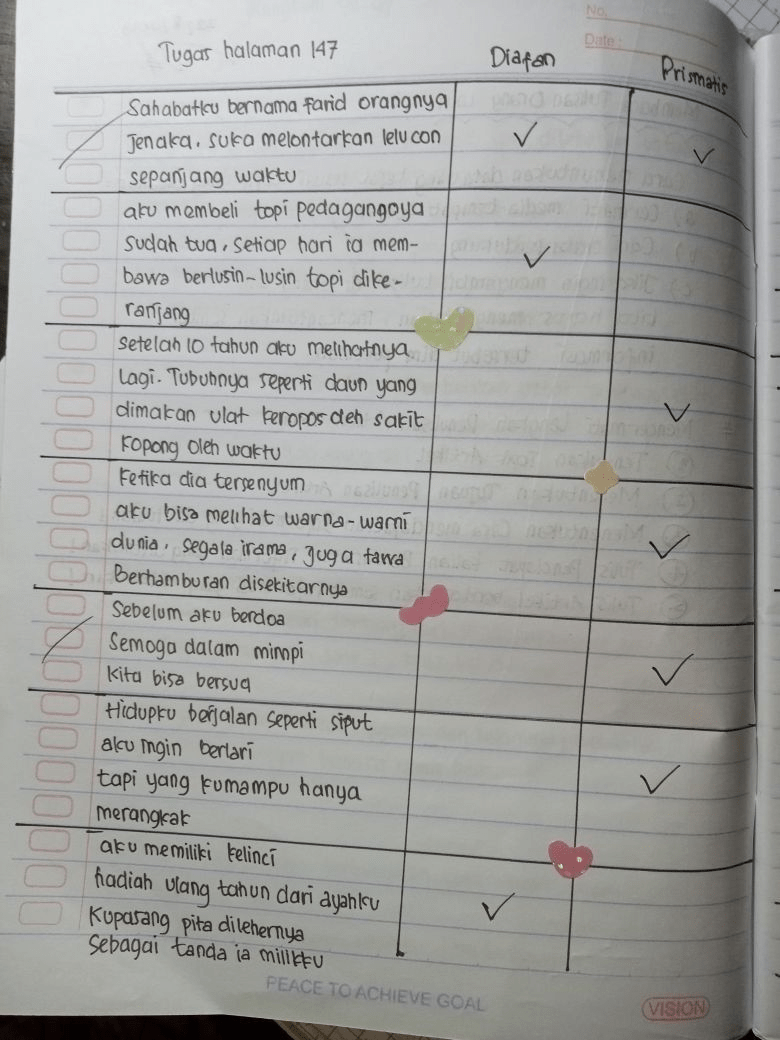 No.
Date:
Tugas halaman 147
Diafan
Prismatis
Sahabatku bernama farid orangnya
Jenaka, suka melontarkan lelucon
sepanjang waktu
aku membeli topi pedagangnya
sudah tua, setiap hari ia mem-
bawa berlusin-lusin topi dike-
ranjang
setelah 10 tahun aku melihatnya
Lagi. Tubuhnya seperti daun yang
dimakan ulat keropos oleh sakit
Kopong oleh waktu
Ketika dia tersenyum
aku bisa melihat warna-warni
dunia, segala irama, juga tawa
Berhamburan disekitarnya
Sebelum aku berdoa
Semoga dalam mimpi
kita bisa bersua
Hidupku berjalan seperti siput
aku ingin berlari
tapi yang kumampu hanya
merangkak
aku memiliki kelinci
hadiah ulang tahun dari ayahku
Kupasang pita dilehernya
Sebagai tanda ia milikku
PEACE TO ACHIEVE GOAL
VISION